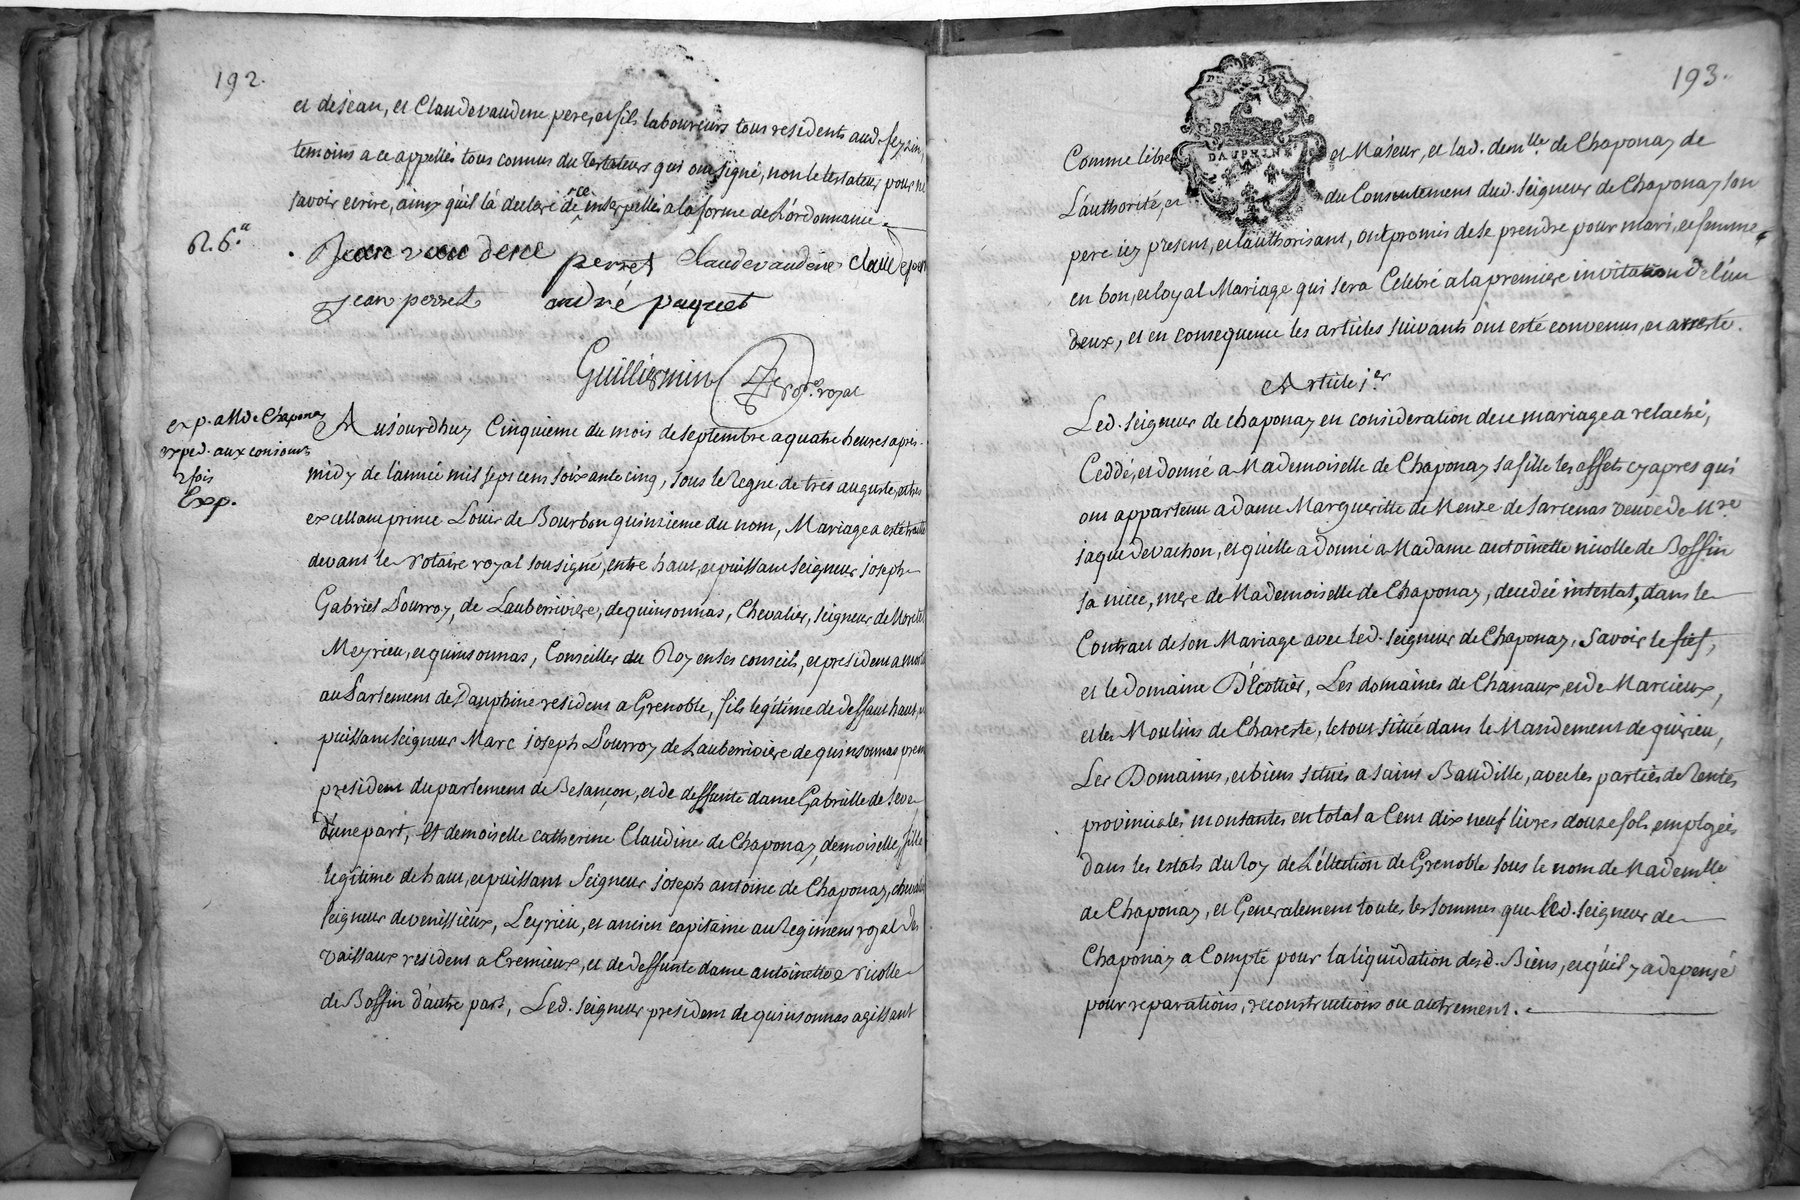 192.
et de jean, et Claude vaudene pere, et fils laboureurs tous residents aud. feyzin,
temoins a ce appellés tous connus du Testateur qui ont signé, non le testateur pour ne
savoir ecrire, ainsy quil la declaré de ce interpellé a la forme de L'ordonnance.
R. 6.s
Jean vaudene perret Claude vaudene Claude
jean perret andré paquet
Guilliermin No.re royal
exp. a M de Chaponay
exped. aux consours
2 fois
Exp.
Aujourdhuy Cinquieme du mois de septembre a quatre heures apres
midy de l'année mil sept cent soixante cinq, sous le Regne de tres auguste, et tres
excellant prince Louis de Bourbon quinzieme du nom, Mariage a esté traité
devant le Notaire royal sousigné, entre haut, et puissant seigneur joseph
Gabriel Pourroy, de Lauberiviere, de quinsonnas, Chevalier, seigneur de Moretel
Meyrieu, et quinsonnas, Conseiller du Roy en ses conseils, et president a mortier
au Parlement de Dauphiné resident a Grenoble, fils legitime de deffunt haut, et
puissant seigneur Marc joseph Pourroy de Lauberiviere de quinsonnas premier
president du parlement de Besançon, et de deffunte dame Gabrielle de Seve
d'une part, Et demoiselle catherine Claudine de Chaponay, demoiselle, fille
legitime de haut, et puissant Seigneur joseph antoine de Chaponay, chevalier
seigneur de venissieux, Leyrieu, et ancien capitaine au Regiment royal des
Vaissaux resident a Cremieux, et de deffunte dame antoinette Nicolle
de Boffin d'autre part, Led. seigneur president de quinsonnas agissant
193.
DAUPHINÉ
Comme libre et Majeur, et lad. dem.lle de Chaponay de
L'authorité, et du Consentement dud. seigneur de Chaponay son
pere icy present, et lauthorisant, ont promis de se prendre pour mari, et femme
en bon, et loyal Mariage qui sera Celebré a la premiere invitation de l'un
deux, et en consequence les articles suivants ont esté convenus, et arresté.
Article 1.er
Led. Seigneur de chaponay en consideration de ce mariage a relaché,
Ceddé, et donné a Mademoiselle de Chaponay sa fille les effets cy apres qui
ont appartenu a dame Margueritte de Menze de Sarcenas veuve de M.re
jaque de vachon, et qu'elle a donné a Madame antoinette nicolle de Boffin
sa niece, mere de Mademoiselle de Chaponay, decedée intestat, dans le
Contract de son Mariage avec led. seigneur de Chaponay, Savoir le fief,
et le domaine D'Ecottier, Les domaines de Chanaux, et de Marcieux,
et les Moulins de Chareste, le tout situé dans le Mandement de quirieu,
Les Domaines, et biens situés a saint Baudille, avec les parties de Rentes
provinciales montantes en total a Cent dix neuf livres douze sols employées
dans les estats du Roy de L'ellection de Grenoble sous le nom de Madem.lle
de Chaponay, et Generalement toutes les sommes que led. seigneur de
Chaponay a Compté pour la liquidation desd. Biens, et qu'il y a depensé
pour reparations, reconstructions ou autrement.